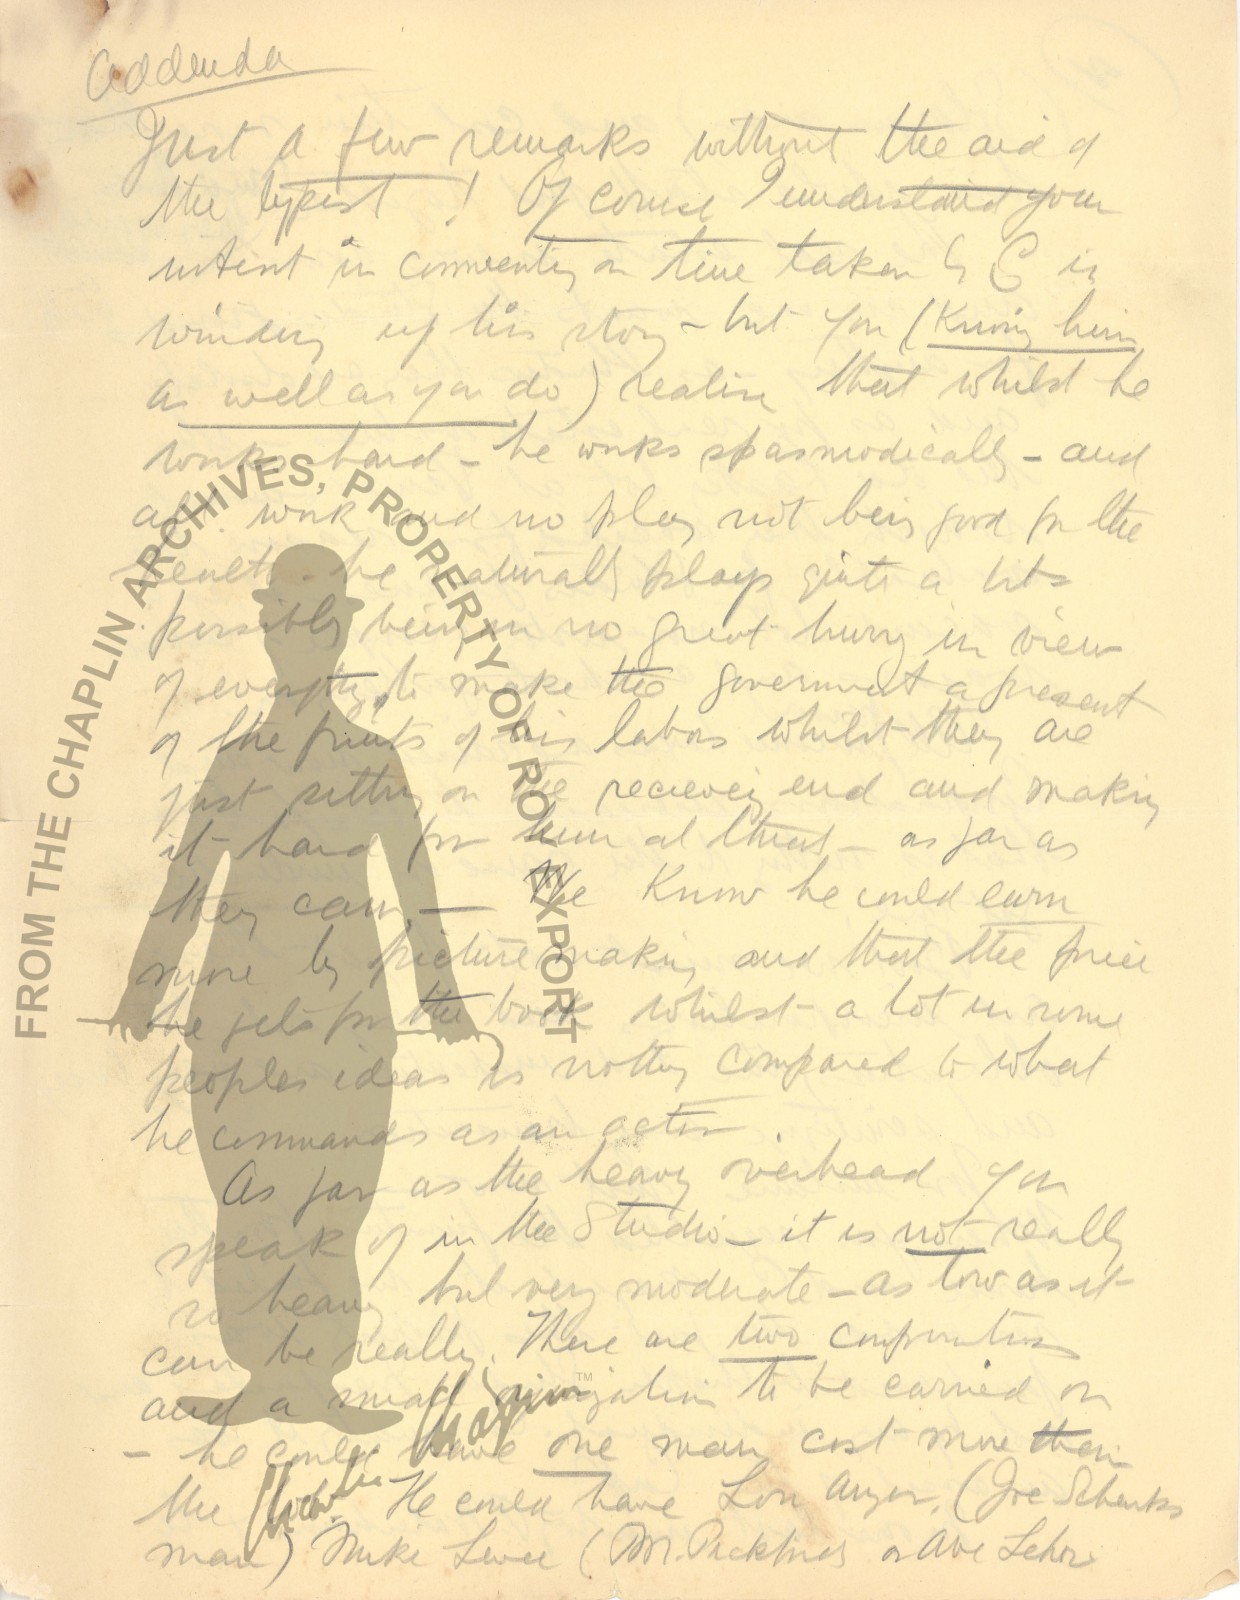 Addenda
Just a few remarks without the aid of
the typist! Of course I understand your
intent in commenting on time taken by C in
winding up his story – but you (Knowing him
as well as you do) realise that whilst he
works hard – he works spasmodically – and
all work and no play not being good for the
health he naturally plays quite a bit
possibly being in no great hurry in view
of everything to make the government a present
of the fruits of his labors whilst they are
just sitting on the recieveing end and making
it hard for him at that – as far as
they can. — We know he could earn
more by picture making and that the price
he gets for the book whilst – a lot in some
peoples ideas is nothing compared to what
he commands as an actor.
As far as the heavy overhead you
speak of in the Studio – it is not really
so heavy but very moderate – as low as it
can be really. There are two corporations
and a small organization to be carried on
– he could have one man cost more than
the He could have Lou Anger, (Joe Schenks
man) Mike Levee (M. Pickfords or Abe Lehr
FROM THE CHAPLIN ARCHIVES, PROPERTY OF ROY EXPORT
Charlie Chaplin
TM